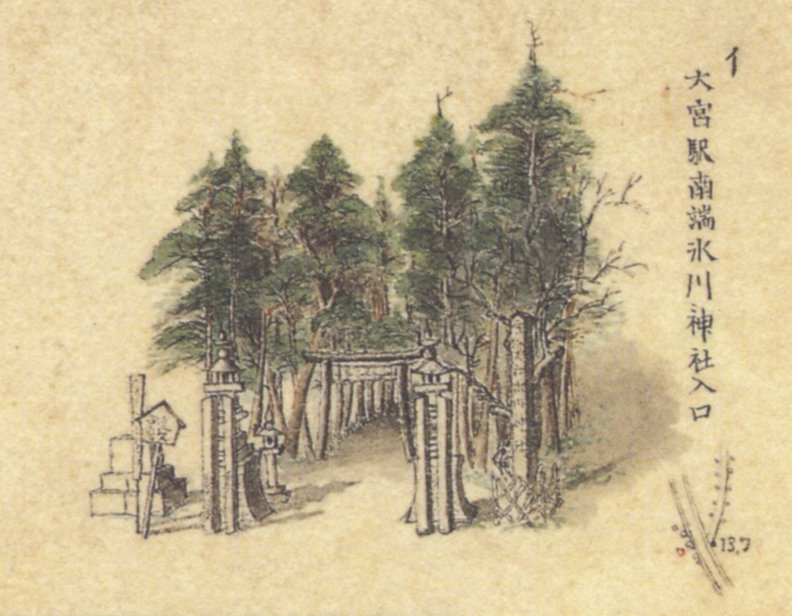 イ
大宮駅南端氷川神社入口
13.7